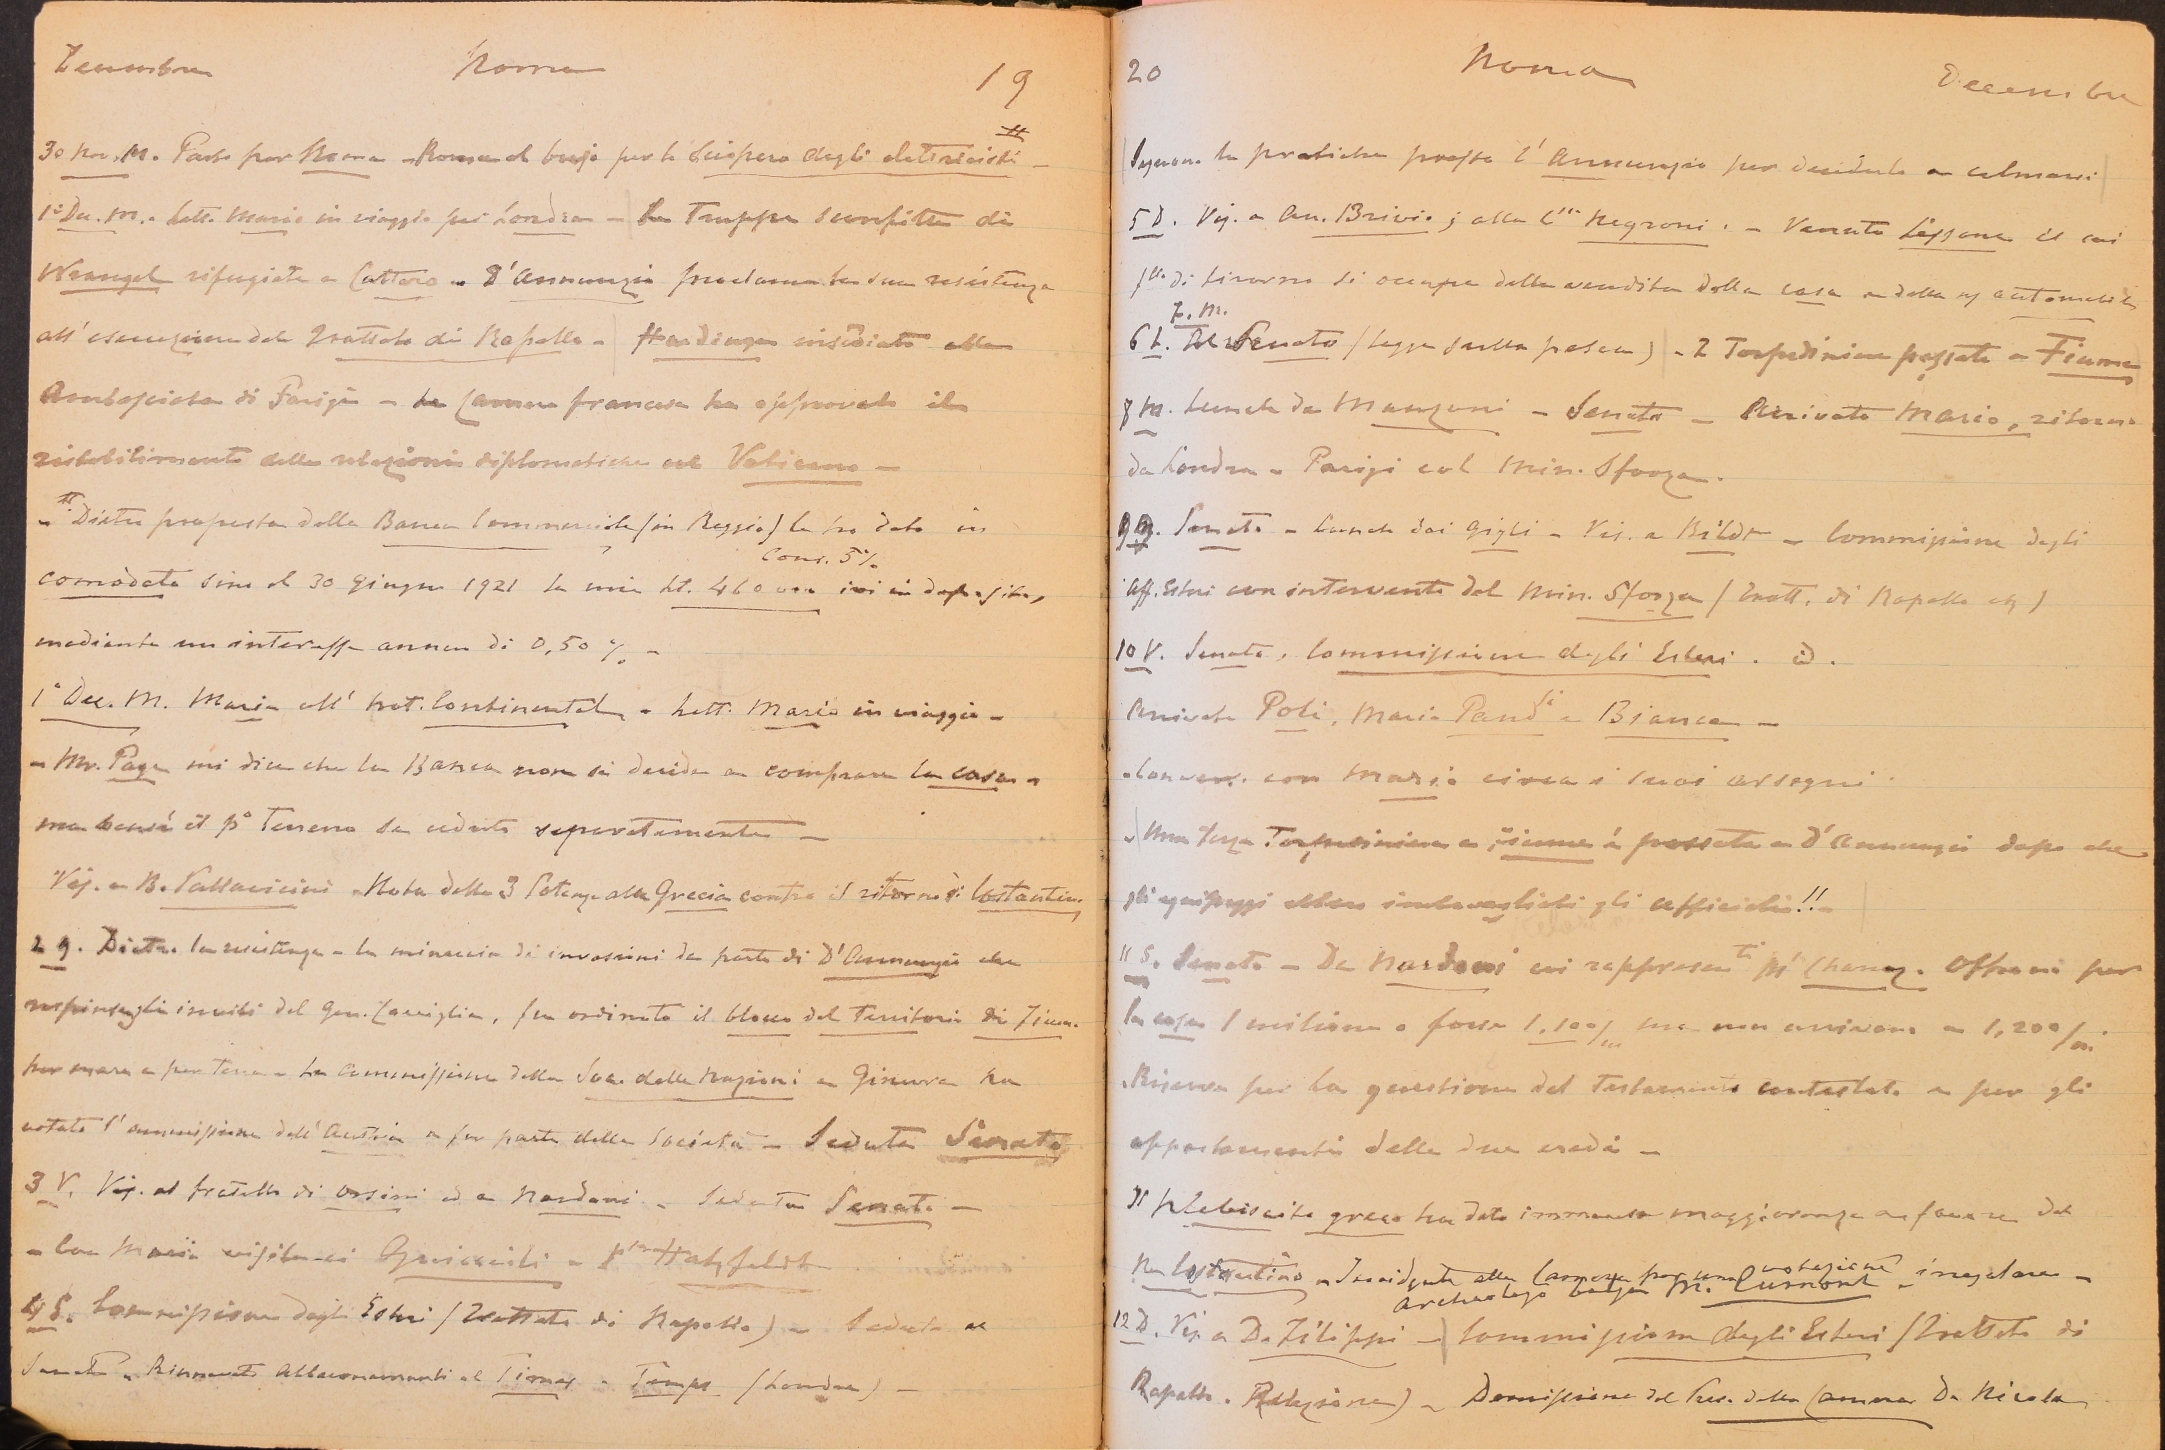 Decembre Roma 19
30 Nov. M. Parto per Roma - Roma al bujo per lo Sciopero degli elettricisti #
1° Dec. M. - Lett. Mario in viaggio per Londra - Le Truppe sconfitte di
Wrangel rifugiate a Cattaro - D'Annunzio proclama la sua resistenza
all'esecuzione del Trattato di Rapallo - Hardinge insediato alla
Ambasciata di Parigi - La Camera francese ha approvato il
ristabilimento delle relazioni diplomatiche col Vaticano -
- # Dietro proposta della Banca Commerciale (in Reggio) le ho dato in
Cons. 5%
comodato sino al 30 Giugno 1921 le mie Lt. 460000 ivi in deposito,
mediante un interesse annuo di 0,50 % -
1° Dec. M. Maria all' hot. Continental - Lett. Mario in viaggio -
- Mr. Page mi dice che la Banca non si decide a comprare la casa -
ma bensì il p° Terreno da cederle separatamente -
Vis. a B. Pallavicini - Nota delle 3 Potenze alla Grecia contro il ritorno di Costantino
2 g. Dietro la resistenza e la minaccia di invasioni da parte di D'Annunzio che
respinse gli inviti del Gen. Caviglia, fu ordinato il blocco del Territorio di Fiume
per mare e per terra - La Commissione della Soc. delle Nazioni a Ginevra ha
votato l'ammissione dell'Austria a far parte della Società - Seduta Senato
3 V. Vis. al fratello di Orsini ed a Nardoni - Seduta Senato -
- Con Maria visita ai Guiccioli - Hatzfeldt
4 S. Commissione degli Esteri (Trattato di Rapallo) - Seduta al
Senato - Rinnovati abbonamenti al Times e Temps (Londra) -
20 Roma Decembre
Seguono le pratiche presso l'Annunzio per deciderlo a calmarsi
5 D. Vis. a An. Brivio; alla C.ssa Negroni. - Venuto Lessona il cui
f.llo di Livorno si occupa della vendita della casa e della automobile
7. M.
6 L. Al Senato (Legge sulla pesca) - 2 Torpediniere passate a Fiume
8 M. Lunch da Manzoni - Senato - Arrivato Mario, ritorno
da Londra e Parigi col Min. Sforza.
9 g. Senato - Lunch dai Gigli - Vis. a Bildt - Commissione degli
Aff. Esteri con intervento del Min. Sforza (Tratt. di Rapallo etc)
10 V. Senato, Commissione degli Esteri. id.
Arrivate Poli, Maria Pand a Bianca -
- Convers. con Mario circa i suoi assegni.
- Una terza Torpediniera a Fiume è passata a D'Annunzio dopo che
gli equipaggi ebbero imbavagliati gli ufficiali!! -
11 S. Senato - Da Nardoni coi rappresen.ti Offrono per
la casa 1 milione o forse 1,100/m ma non arrivano a 1,200/m.
- Riserva per la questione del Testamento contestato e per gli
appartamenti delle due eredi -
Il plebiscito greco ha dato immensa maggioranza a favore del
Re Costantino - Incidente alla Camera per una votazione irregolare -
Archeologo belga M. Cumont
12 D. Vis. a De Filippi - Commissione degli Esteri (Trattato di
Rapallo. Relazione) - Demissione del Pres. della Camera De Nicola